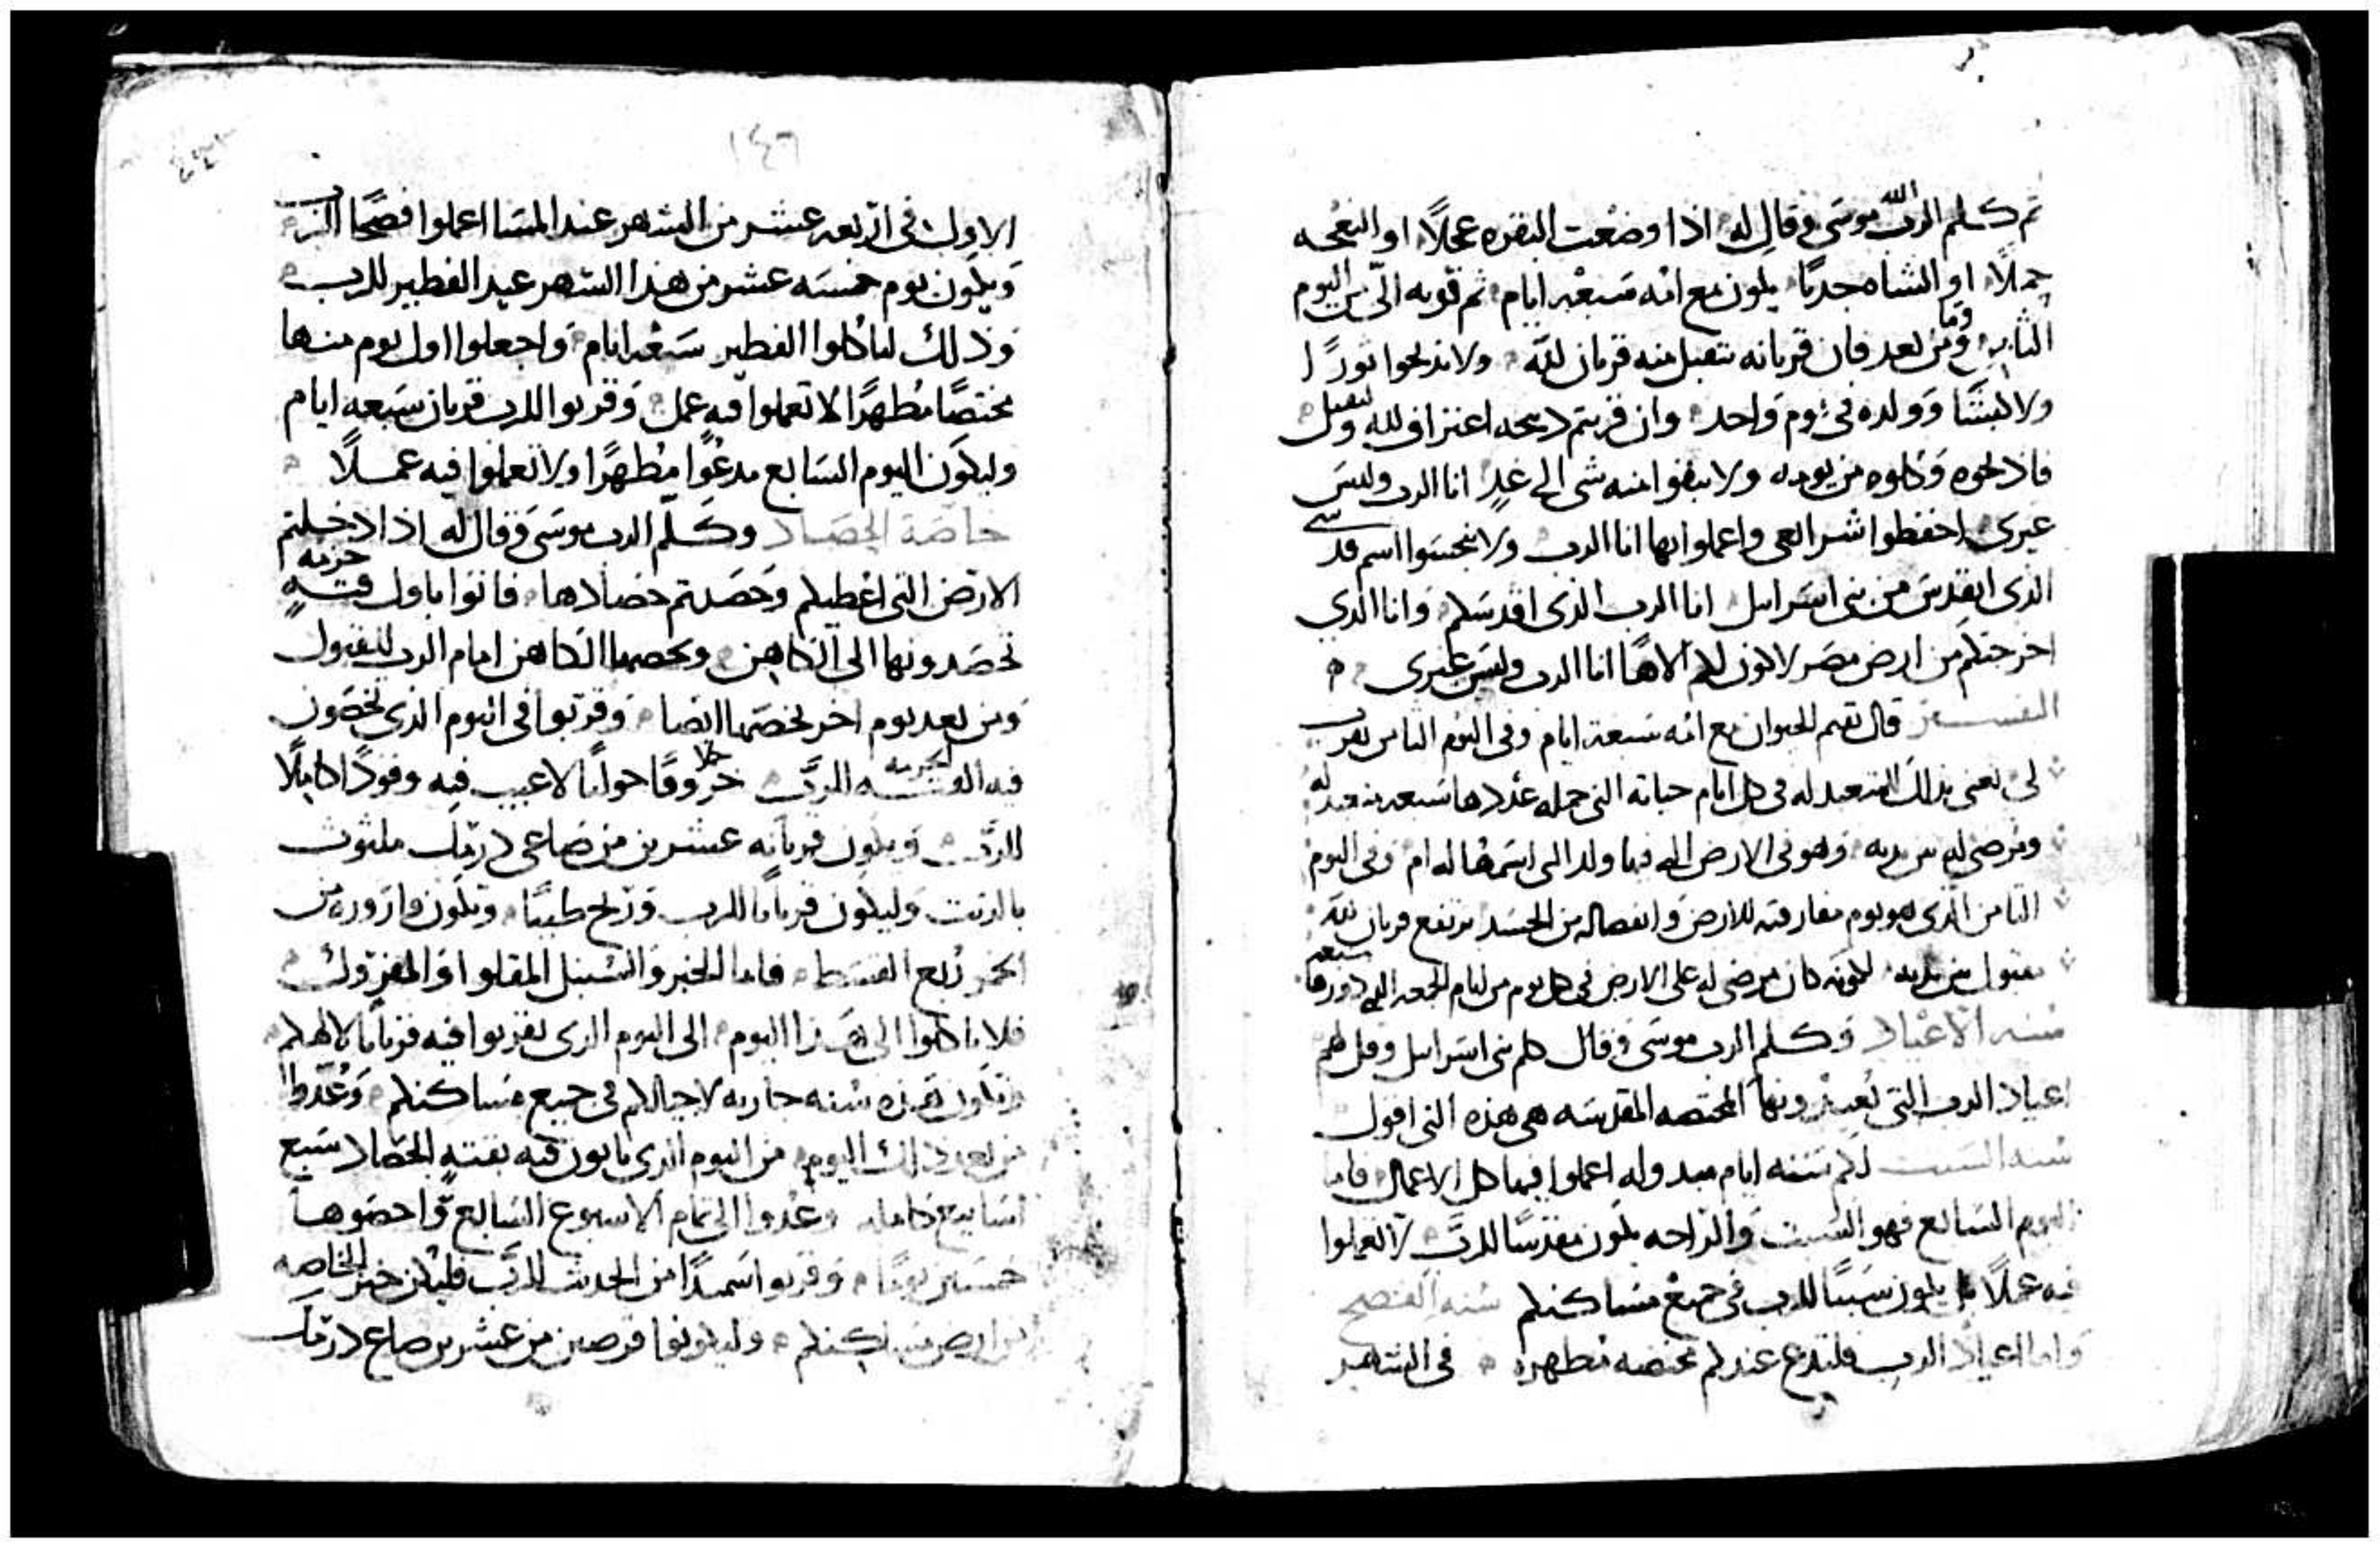 ثم كلم الرب الله موسى وقال له اذا وضعت البقره عجلًا او النعجه
حملًا او الشاه جديًا يكون مع امه سبعة ايام ثم قربه الى من اليوم
الثامن وما ومن بعد فان قربانه يتقبل منه قربان لله ولا تذبحوا ثورًا
ولا كبشًا وولده في يوم واحد وان قربتم ذبيحه اعتراف لله
فاذبحوه وكلوه من يومه ولا تبقوا منه شى الى غدٍ انا الرب وليس
غيرى احفظوا شرايعى واعملوا بها انا الرب ولا تنجسوا اسم قدسي
الذى اتقدس من بنى اسرايل انا الرب الذى اقدسكم وانا الذي
اخرجتكم من ارض مصر لاكون لكم الاهًا انا الرب وليس غيرى
التفسير قال تقيم الحيوان مع امه سبعة ايام وفى اليوم الثامن يقرب
لى يعنى بذلك المتعبد له فى كل ايام حياته التى جمله عددها سبعه
وهو فى الارض وفى اليوم
الثامن الذى هو يوم مفارقته للارض وانفصاله من الجسد يرتفع قربان لله
مقبول بين يديه لكونه كان مرضى له على الارض فى كل يوم من ايام الجمعه
سنه الاعياد وكلم الرب موسى وقال كلم بنى اسرايل وقل لهم
اعياد الرب التى المختصه المقدسه هى هذه التى اقول
سنه السبت لكم سته ايام اعملوا فيها كل الاعمال فاما
اليوم السابع فهو السبت والراحه يكون مقدسًا للرب لا تعملوا
فيه عملًا بل يكون سبتًا للرب فى جميع مساكنكم سنه الفصح
واما اعياد الرب فلتدع عندكم مختصه مطهره فى الشهر
١٤٦
الاول فى اربعه عشر من الشهر عند المسا اعملوا فصحًا للرب
ويكون يوم خمسه عشر من هذا الشهر عيد الفطير للرب
وذلك لتاكلوا الفطير سبعة ايام واجعلوا اول يوم منها
مختصًا مطهرًا لا تعملوا فيه عمل وقربوا للرب قربان سبعه ايام
وليكون اليوم السابع مدعوًا مطهرًا ولا تعملوا فيه عملًا
خاصة الحصاد وكلم الرب موسى وقال له اذا دخلتم
الارض التى اعطيكم وحصدتم حصادها فاتوا باول قتهٍ حزمه
تحصدونها الى الكاهن ويخصها الكاهن امام الرب للقبول
ومن بعد يوم اخر يخصها ايضا وقربوا فى اليوم الذى تخصون
فيه للرب خروفًا حوليًا لا عيب فيه وقودًا كاملًا
للرب ويكون قربانه عشرين من صاعى درمك ملتوث
بالزيت وليكون قربانًا للرب وريح طيبًا وتكون قارورة من
الخمر ربع القسط فاما الخبز والسنبل المقلوا والمفروك
فلا تاكلوا الى هذا اليوم الى اليوم الذى تقربوا فيه قربانًا لالهكم
وتكون هذه سنه جاريه لاجيالكم فى جميع مساكنكم وعدوا
من بعد ذلك اليوم من اليوم الذى تاتون فيه بقتهِ الحصاد سبع
اسابيع كامله وعدوا الى تمام الاسبوع السابع واحصوها
خمسين يومًا وقربوا سميدًا من الحديث للرب فليكن خبز الخاصه
من ارض مساكنكم وليكونوا قرصين من عشرين صاع درمك